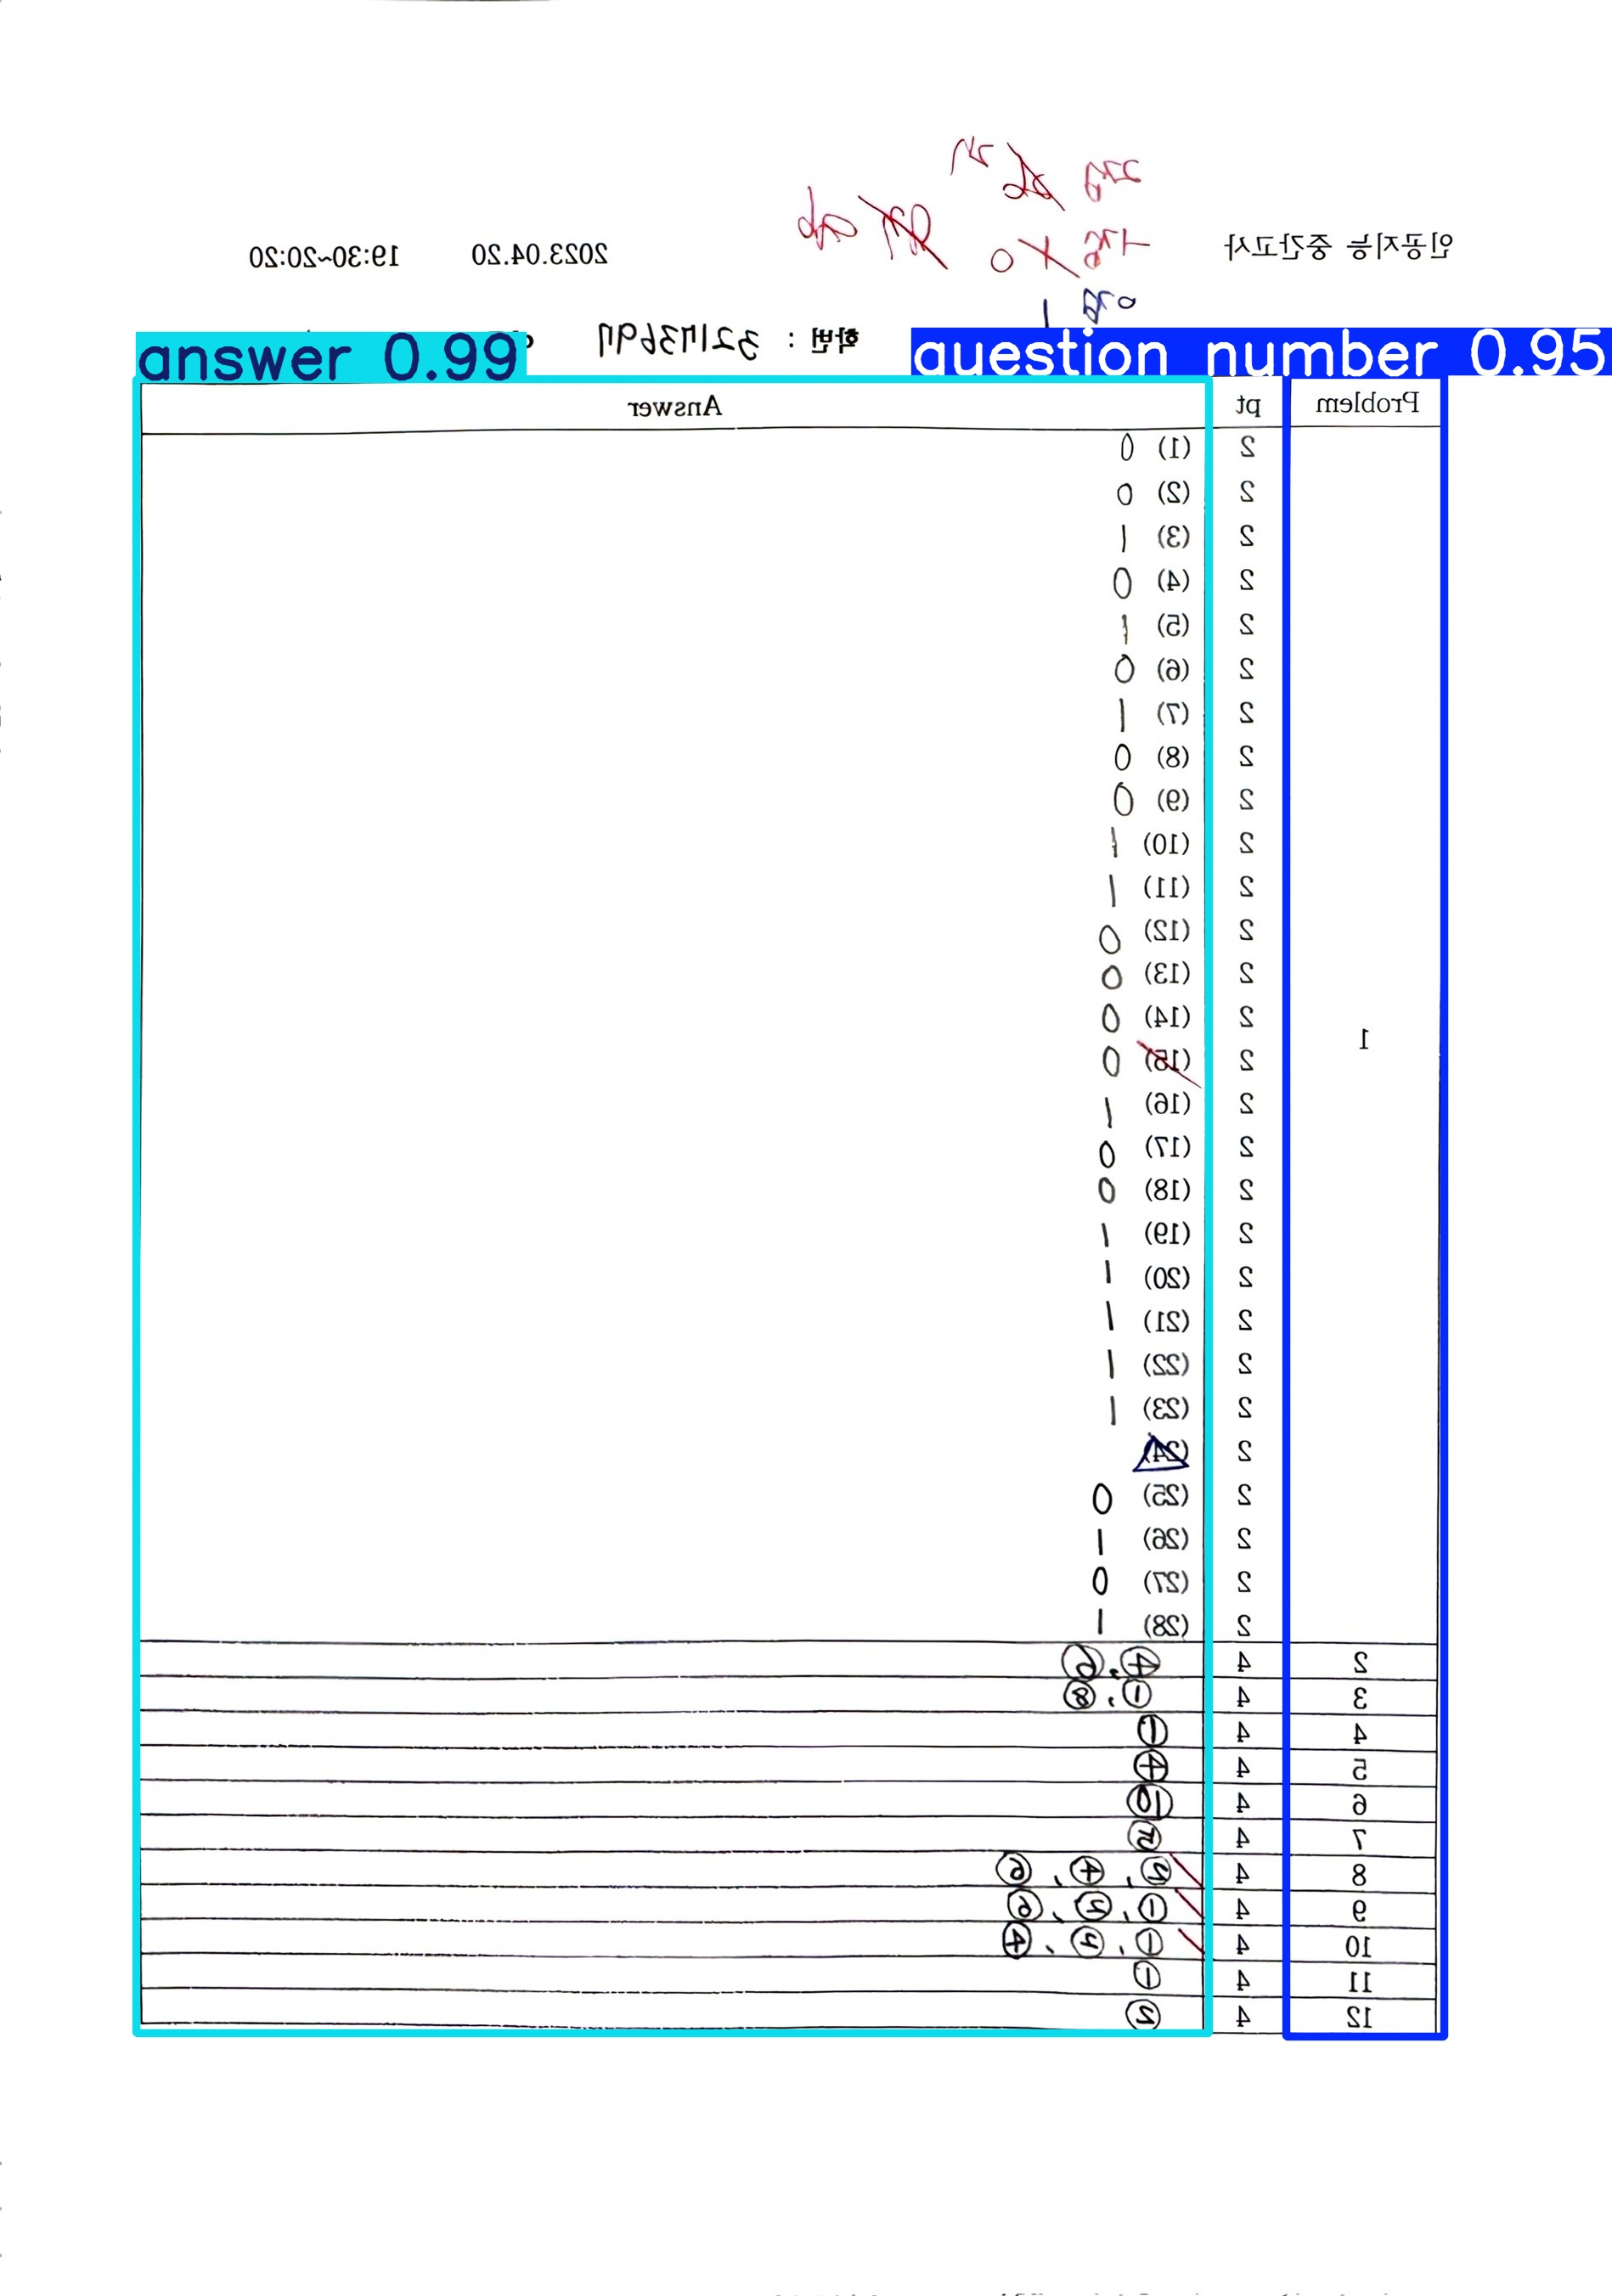 인공지능 중간고사 2023.04.20 19:30~20:20
학번 : 32173697
answer 0.99
question number 0.95
Problem pt Answer
1
2 (1) 0
2 (2) 0
2 (3) 1
2 (4) 0
2 (5) 1
2 (6) 0
2 (7) 1
2 (8) 0
2 (9) 0
2 (10) 1
2 (11) 1
2 (12) 0
2 (13) 0
2 (14) 0
2 (15) 0
2 (16) 1
2 (17) 0
2 (18) 0
2 (19) 1
2 (20) 1
2 (21) 1
2 (22) 1
2 (23) 1
2 (24)
2 (25) 0
2 (26) 1
2 (27) 0
2 (28) 1
2 4 ④, ⑥
3 4 ①, ⑧
4 4 ①
5 4 ④
6 4 ⑩
7 4 ⑤
8 4 ②, ④, ⑥
9 4 ①, ②, ⑥
10 4 ①, ②, ④
11 4 ①
12 4 ②